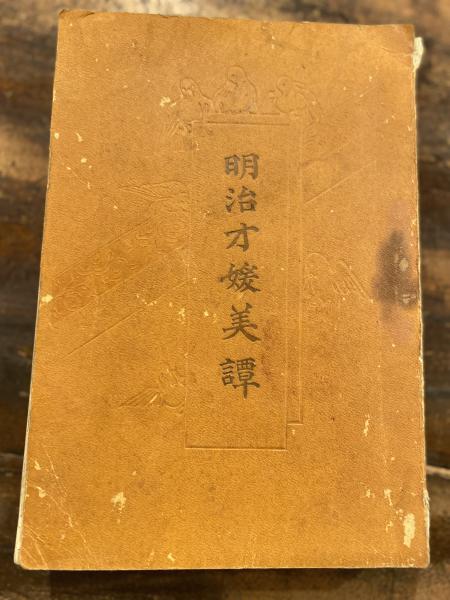 明治才媛美譚